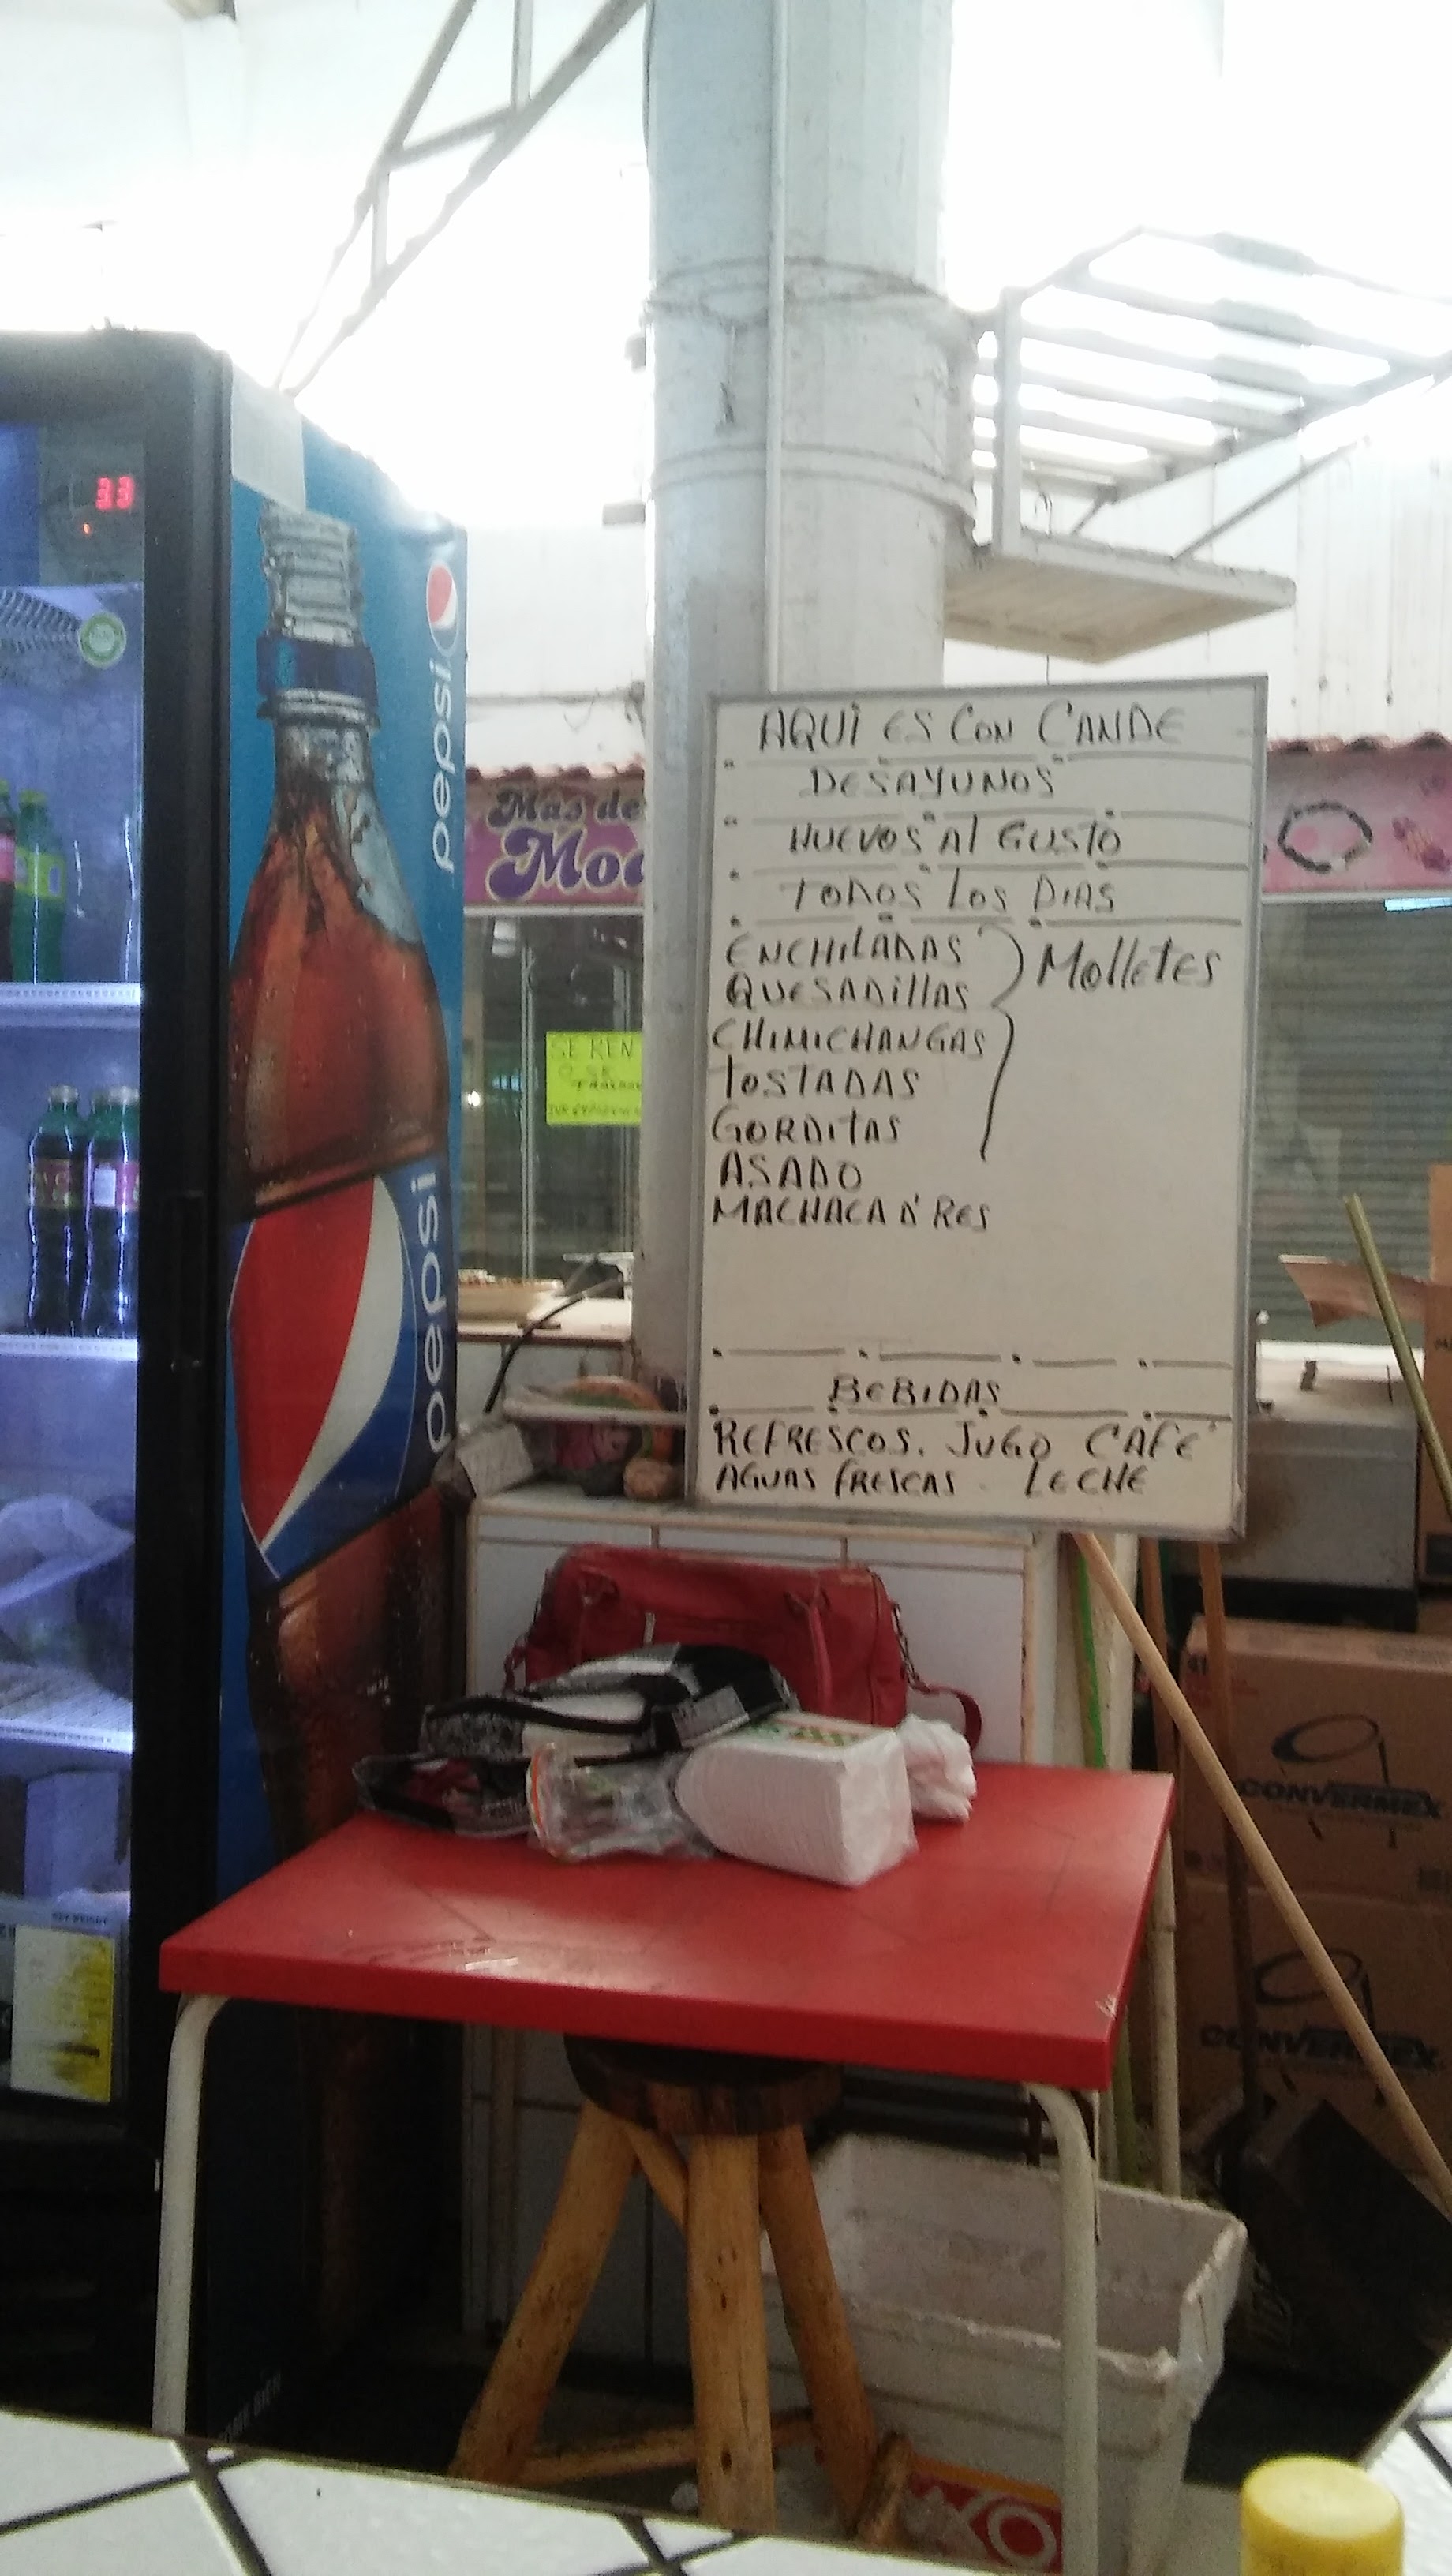 AQUÍ ES CON CANDE
DESAYUNOS
HUEVOS Al GUSTO
TODOS LOS DIAS
ENCHILADAS
QUESADIllAS
CHIMICHANGAS
TOSTADAS
GORDITAS
ASADO
MACHACA D' RES
Molletes
BEBIDAS
REFRESCOS. JUGO CAFE
AGUAS FRESCAS - LECHE
33
pepsi
pepsi
Mas de
Moc
SE REN
O SE
CONVERMEX
CONVERMEX